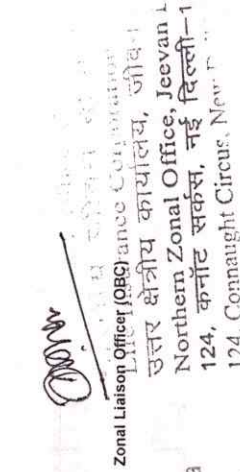 Zonal Liaison Officer (OBC)
Life Insurance Corporation
उत्तर क्षेत्रीय कार्यालय, जीवन
Northern Zonal Office, Jeevan
124, कनॉट सर्कस, नई दिल्ली-1
124, Connaught Circus, New